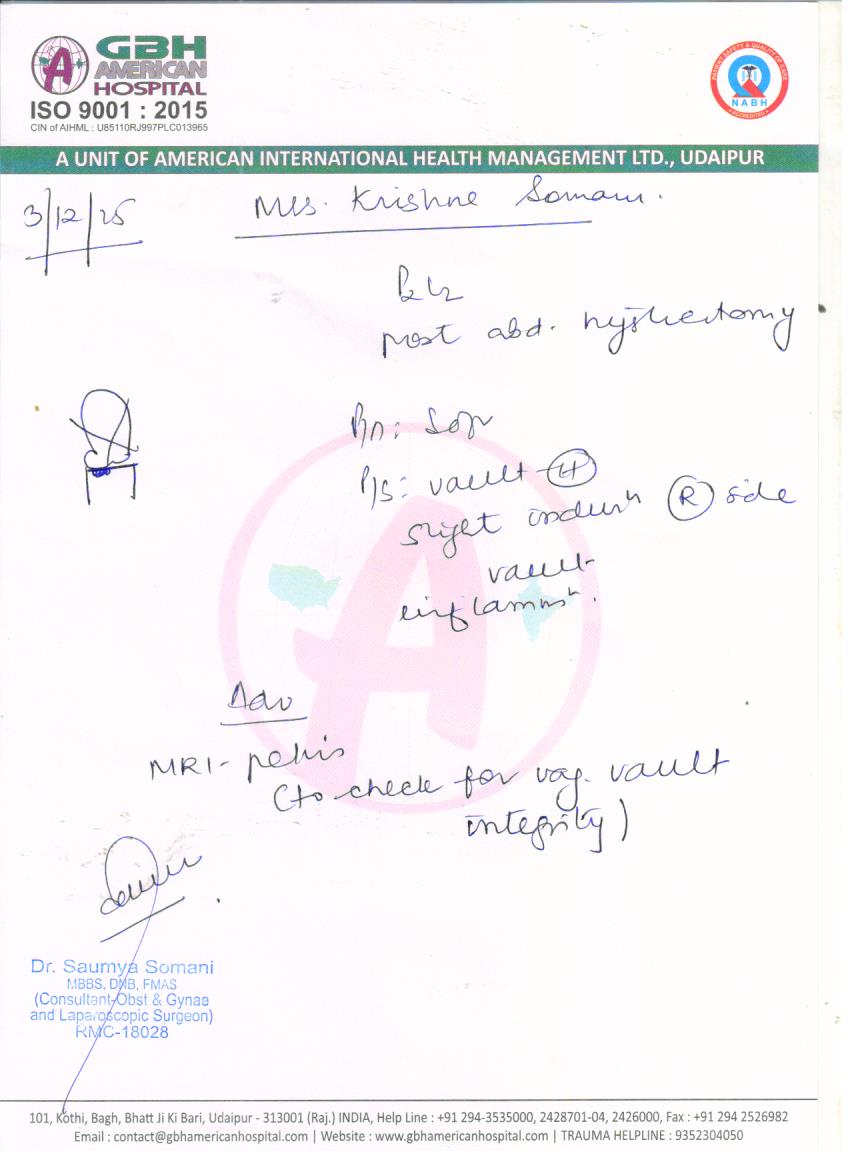 GBH
AMERICAN
HOSPITAL
ISO 9001 : 2015
CIN of AIHML : U85110RJ997PLC013965
PATIENT SAFETY & QUALITY OF CARE
NABH
ACCREDITED
A UNIT OF AMERICAN INTERNATIONAL HEALTH MANAGEMENT LTD., UDAIPUR
3/12/25
Mrs. Krishne Somani.
P2L2
post abd. hysterectomy
P/A: Soft
P/S: vault - H
slight indurn R side
vault
inflammn.
Adv
MRI - pelvis
(to check for vag. vault
integrity)
Dr. Saumya Somani
MBBS, DNB, FMAS
(Consultant-Obst & Gynae
and Laparoscopic Surgeon)
RMC-18028
101, Kothi, Bagh, Bhatt Ji Ki Bari, Udaipur - 313001 (Raj.) INDIA, Help Line : +91 294-3535000, 2428701-04, 2426000, Fax : +91 294 2526982
Email : contact@gbhamericanhospital.com | Website : www.gbhamericanhospital.com | TRAUMA HELPLINE : 9352304050